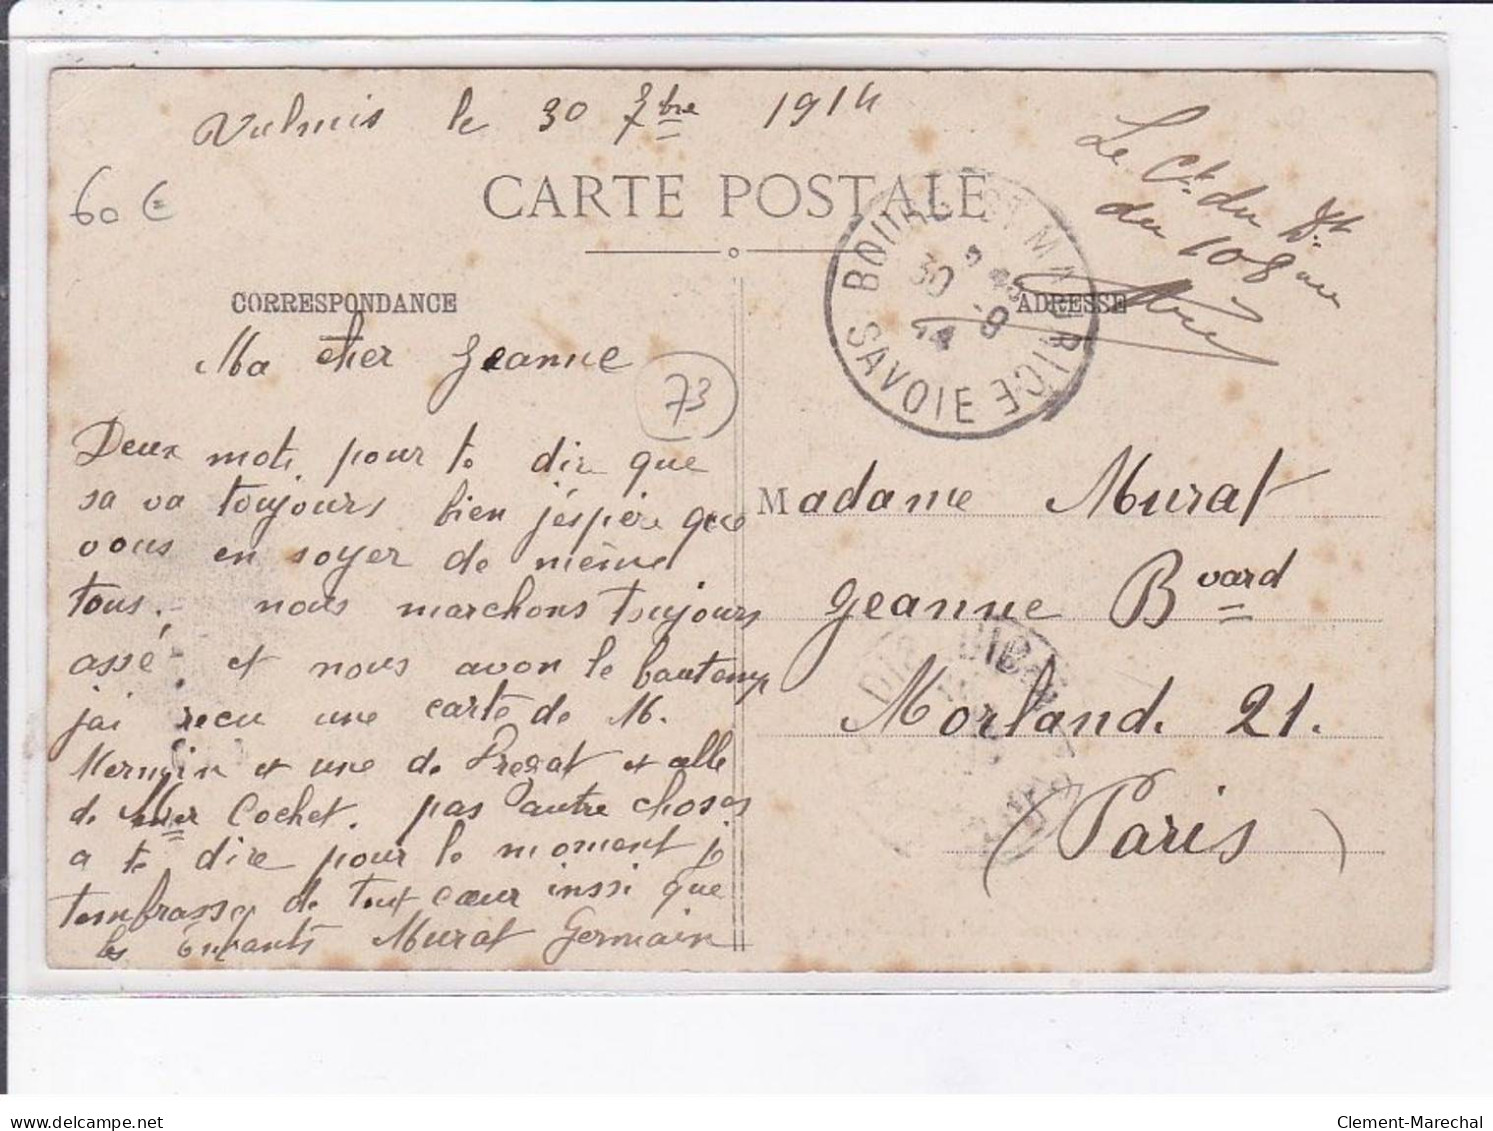 Vulmis le 30 7bre 1914
60 €
CARTE POSTALE
Le Ct. du Dt.
du 108 me
BOURG-ST MAURICE
30 - 9
14
SAVOIE
CORRESPONDANCE
ADRESSE
Ma cher Jeanne
73
Deux mots pour te dire que
sa va toujours bien j'éspère que
vous en soyer de même
tous. nous marchons toujours
assé. et nous avon le bautemp
jai recu une carte de M.
Mermin et une de Pregat et alle
de Mer Cochet. pas autre choses
a te dire pour le moment je
tembrasse de tout cœur inssi que
les Enfants Murat Germain
Madame Murat
Jeanne Bvard
Morland. 21.
(Paris)
www.delcampe.net
Clement-Marechal